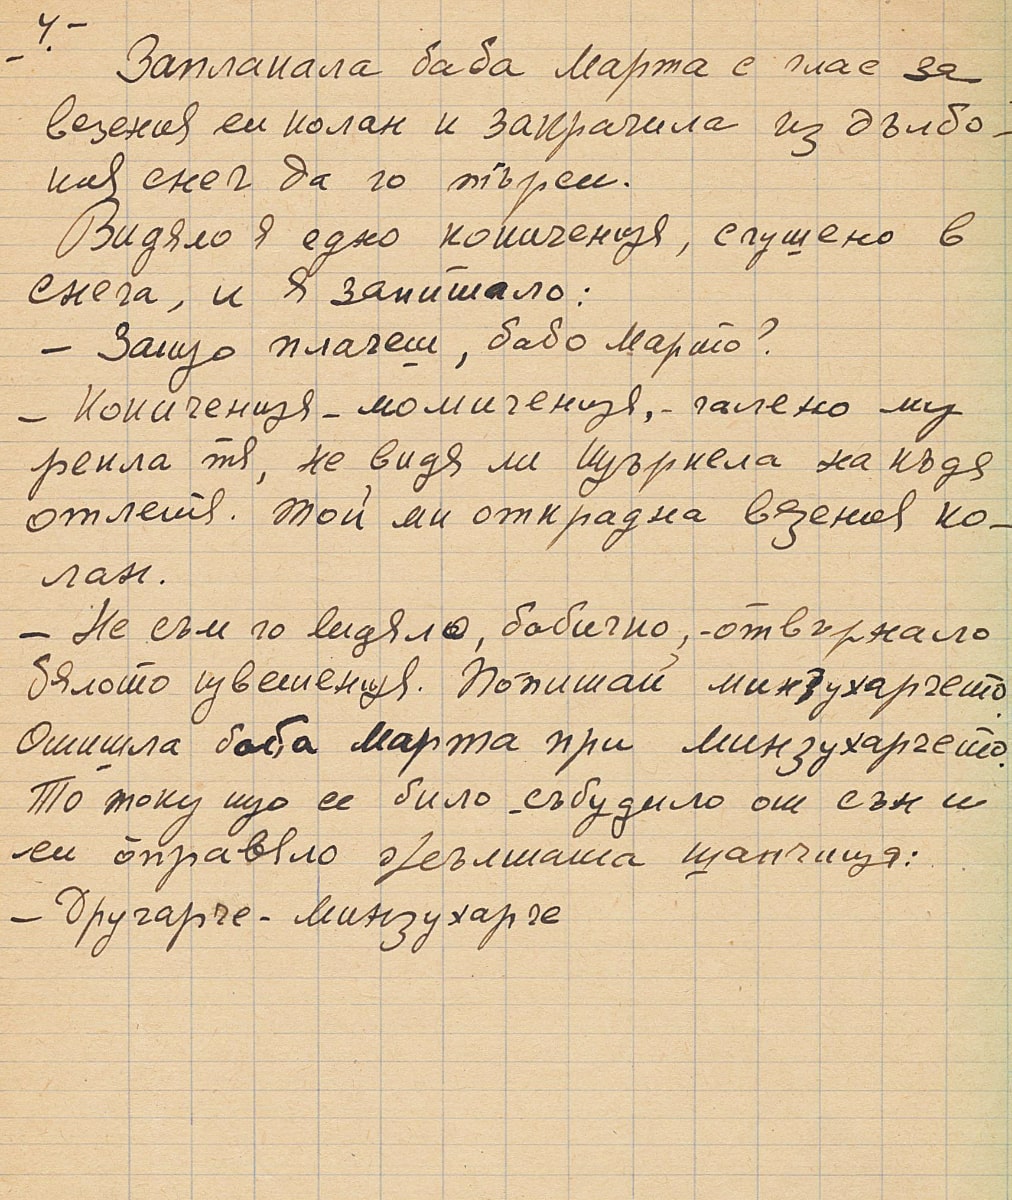 - 4. -
Заплакала баба Марта с глас за
везения си колан и закрачила из дълбо-
кия снег да го търси.
Видяло я едно кокиченце, сгушено в
снега, и я запитало:
- Защо плачеш, бабо Марто?
- Кокиченце-момиченце, - галено му
рекла тя, не видя ли Щъркела на къдя
отлетя. Той ми открадна везения ко-
лан.
- Не съм го видяло, бабичко, - отвърнало
бялото цветенце. Попитай минзухарчето.
Отишла баба Марта при минзухарчето.
То току що се било събудило от сън и
си оправяло жълтата шапчица:
- Другарче - минзухарче